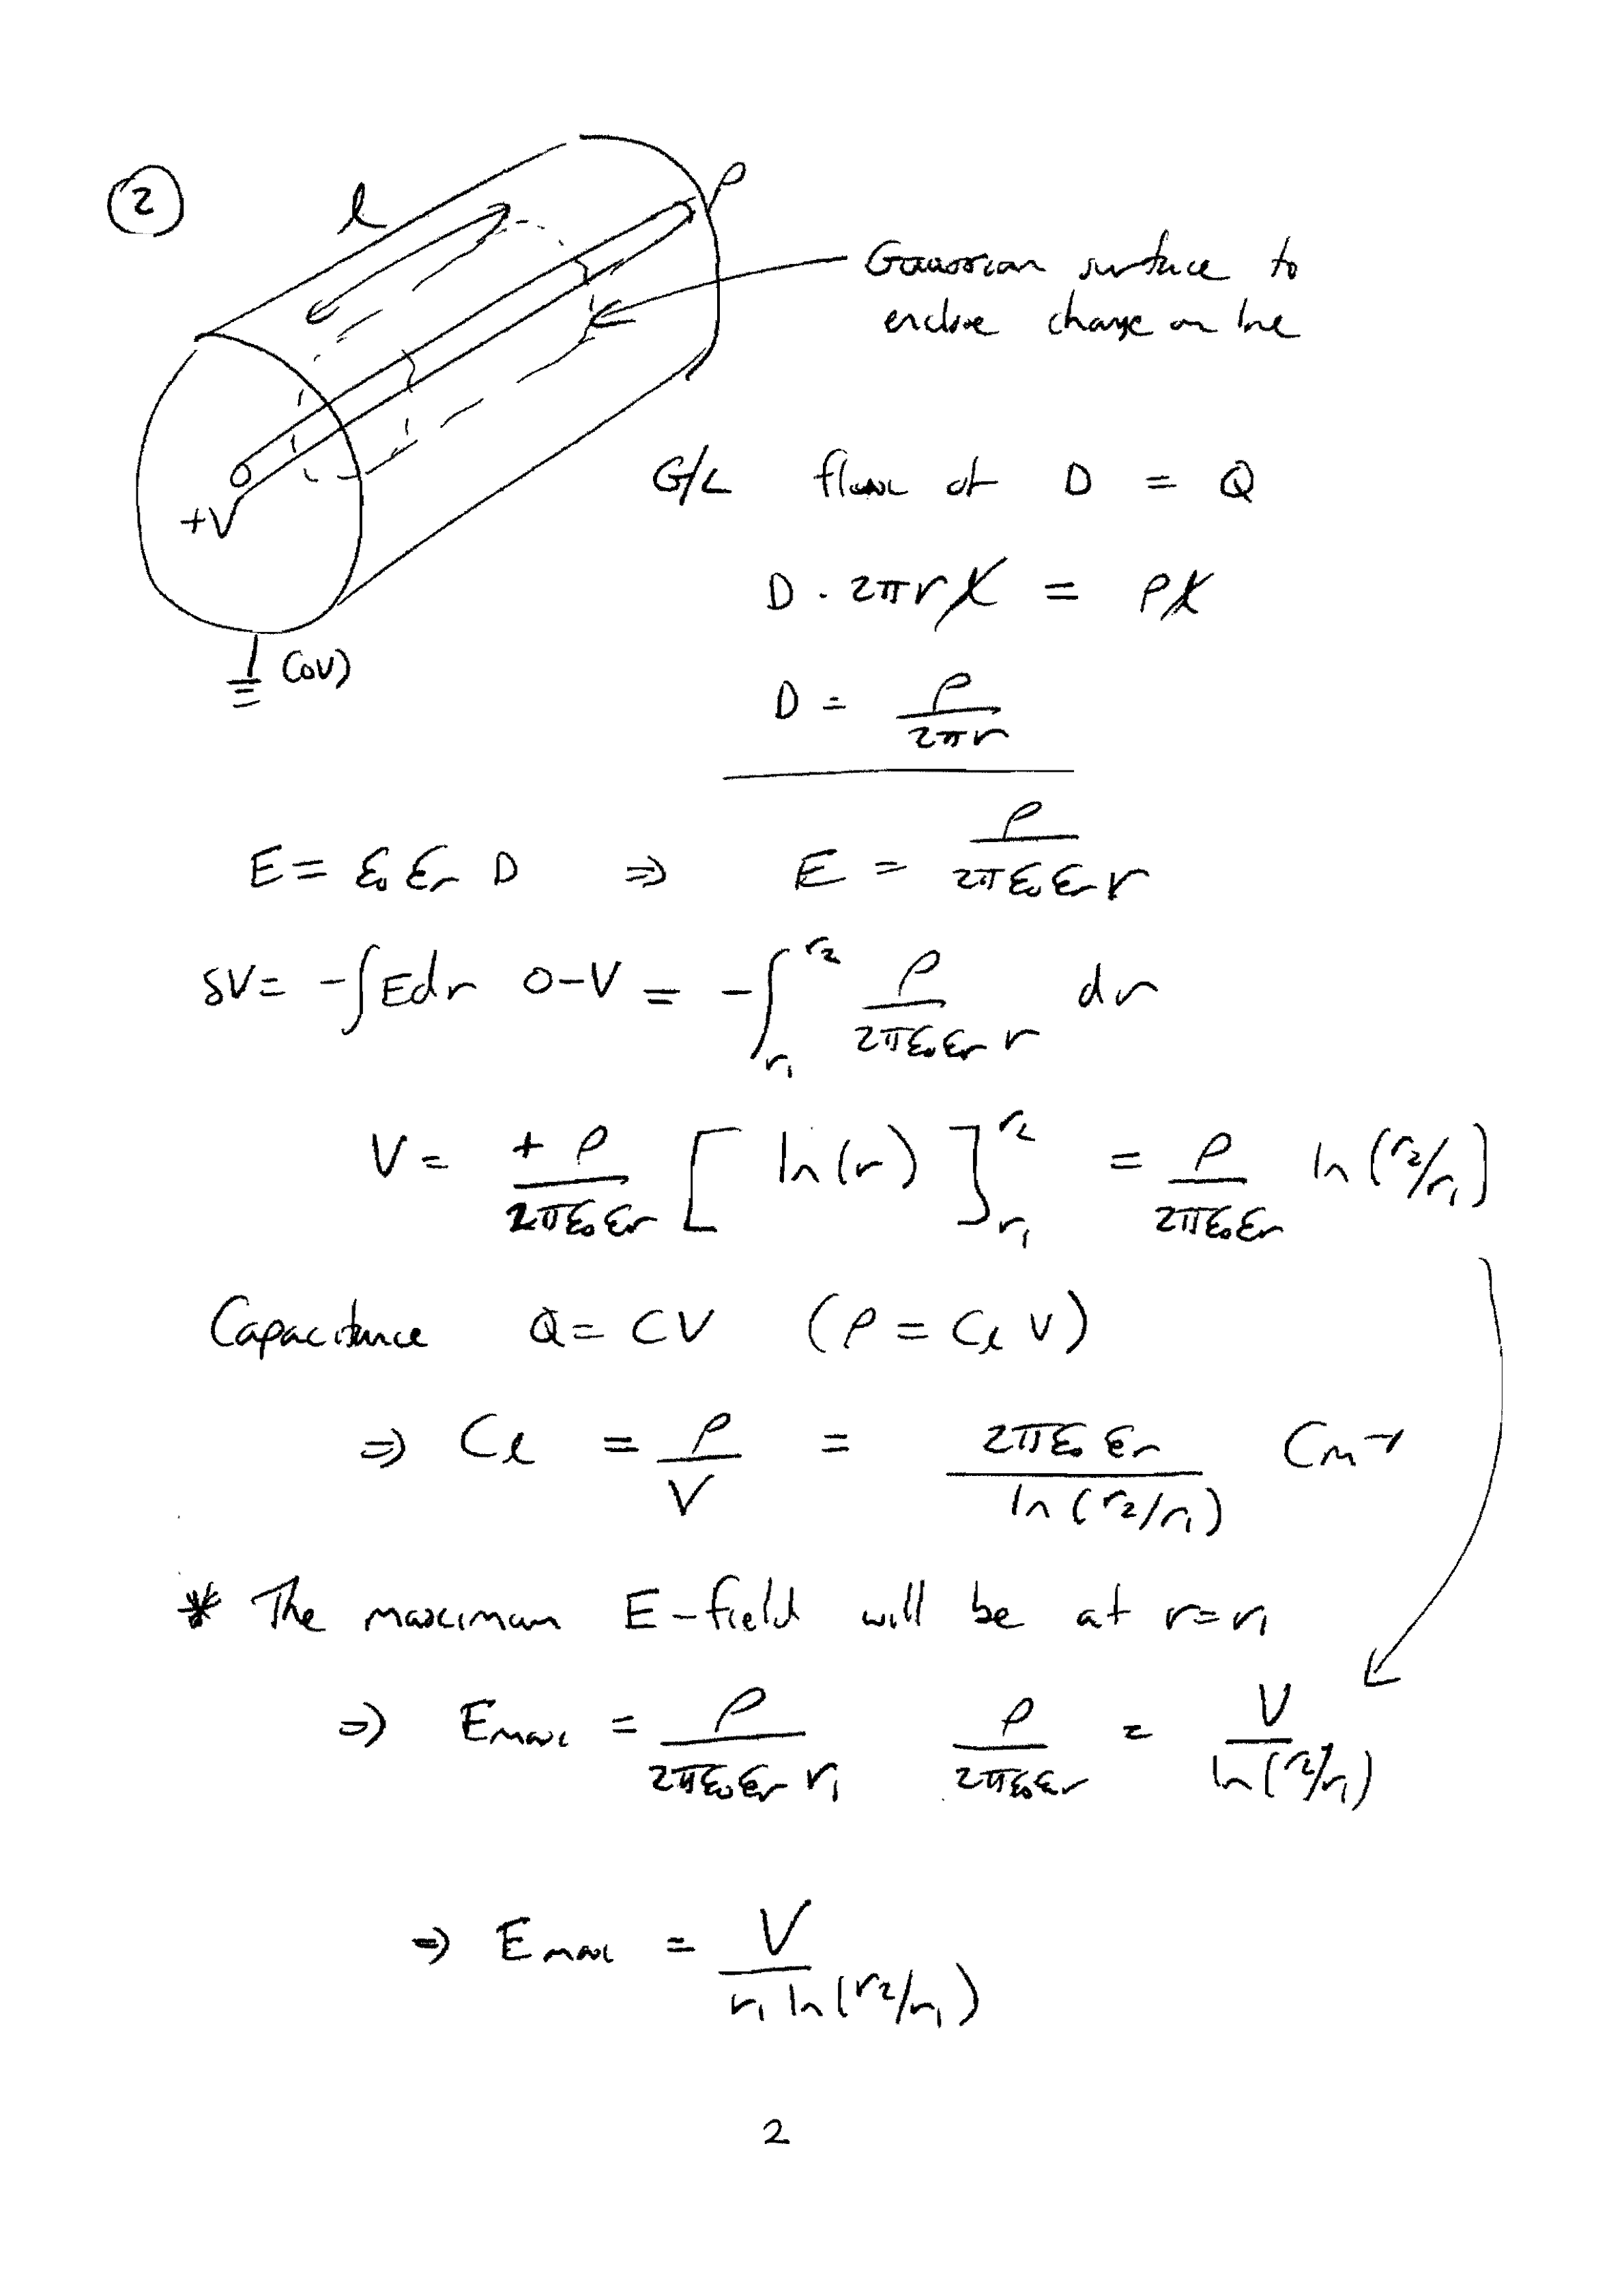 ② l ρ
Gaussian surface to
enclose charge on line
+V
(0V)
G/L flux of D = Q
D · 2πrl = ρl
D = ρ/2πr
E = ε₀ εr D ⇒ E = ρ/2πε₀εr r
δV = -∫Edr 0-V = -∫r₁^r₂ ρ/2πε₀εr r dr
V = +ρ/2πε₀εr [ ln(r) ]r₁^r₂ = ρ/2πε₀εr ln(r₂/r₁)
Capacitance Q = CV (ρ = Cl V)
⇒ Cl = ρ/V = 2πε₀ εr/ln(r₂/r₁) Cm⁻¹
* The maximum E-field will be at r=r₁
⇒ Emax = ρ/2πε₀εr r₁ ρ/2πε₀εr = V/ln(r₂/r₁)
⇒ Emax = V/r₁ ln(r₂/r₁)
2